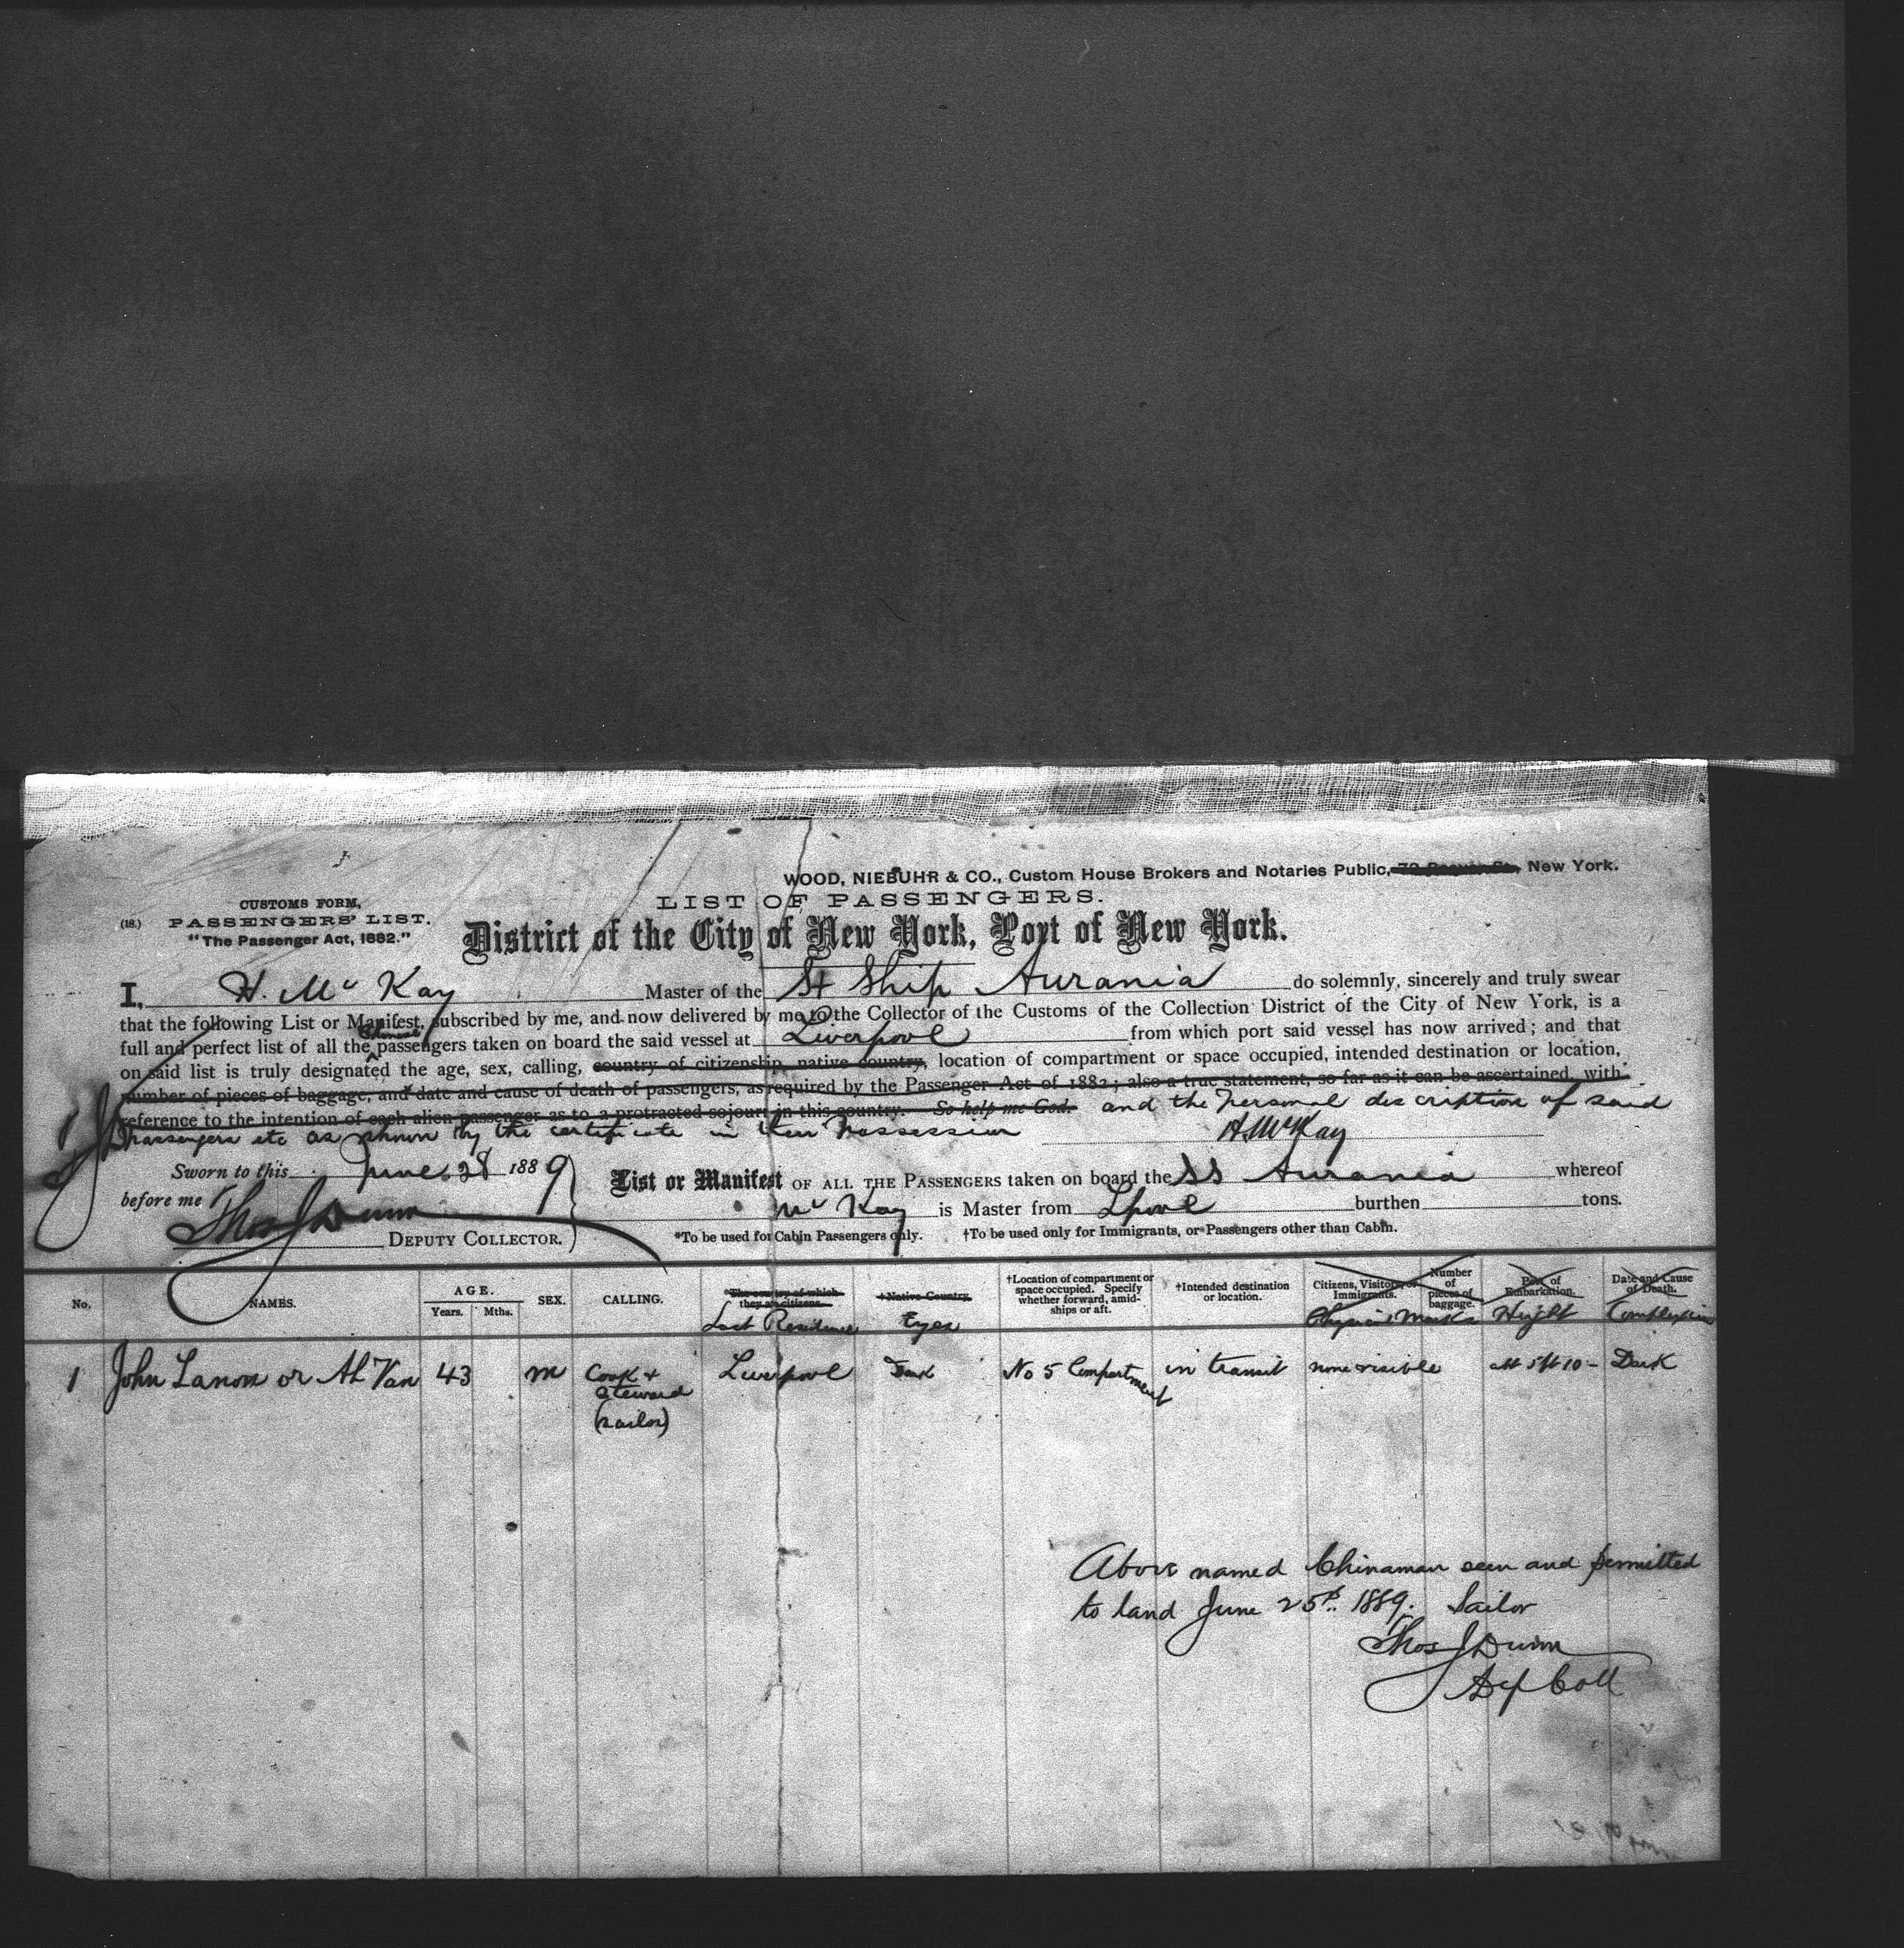 WOOD, NIEBUHR & CO., Custom House Brokers and Notaries Public, New York.
LIST OF PASSENGERS.
CUSTOMS FORM,
(18.) PASSENGERS' LIST.
"The Passenger Act, 1882."
District of the City of New York, Port of New York.
I, H. Mc Kay Master of the St Ship Aurania do solemnly, sincerely and truly swear
that the following List or Manifest, subscribed by me, and now delivered by me to the Collector of the Customs of the Collection District of the City of New York, is a
Chinese
full and perfect list of all the passengers taken on board the said vessel at Liverpool from which port said vessel has now arrived; and that
on said list is truly designated the age, sex, calling, country of citizenship, native country, location of compartment or space occupied, intended destination or location,
number of pieces of baggage, and date and cause of death of passengers, as required by the Passenger Act of 1882; also a true statement, so far as it can be ascertained, with
reference to the intention of each alien passenger as to a protracted sojourn in this country. So help me God. and the personal description of said
passengers etc as shown by the certificate in their possession
H McKay
Sworn to this June 28 1889
before me
Thos J Dunn
DEPUTY COLLECTOR.
List or Manifest OF ALL THE PASSENGERS taken on board the SS Aurania whereof
Mc Kay is Master from Lpool burthen tons.
*To be used for Cabin Passengers only. †To be used only for Immigrants, or Passengers other than Cabin.
No. NAMES. AGE. Years. Mths. SEX. CALLING. *The country of which they are citizens. Last Residence †Native Country. Eyes †Location of compartment or space occupied. Specify whether forward, amidships or aft. †Intended destination or location. Citizens, Visitors, or Immigrants. Number of pieces of baggage. Physical Marks Port of Embarkation. Height Date and Cause of Death. Complexion
1 John Lanon or Ah Van 43 m Cook + Liverpool Dark No 5 Compartment in transit none visible 5 ft 10 - Dark
Steward
(sailor)
Above named Chinaman seen and permitted
to land June 25th 1889. Sailor
Thos J Dunn
Dep Coll